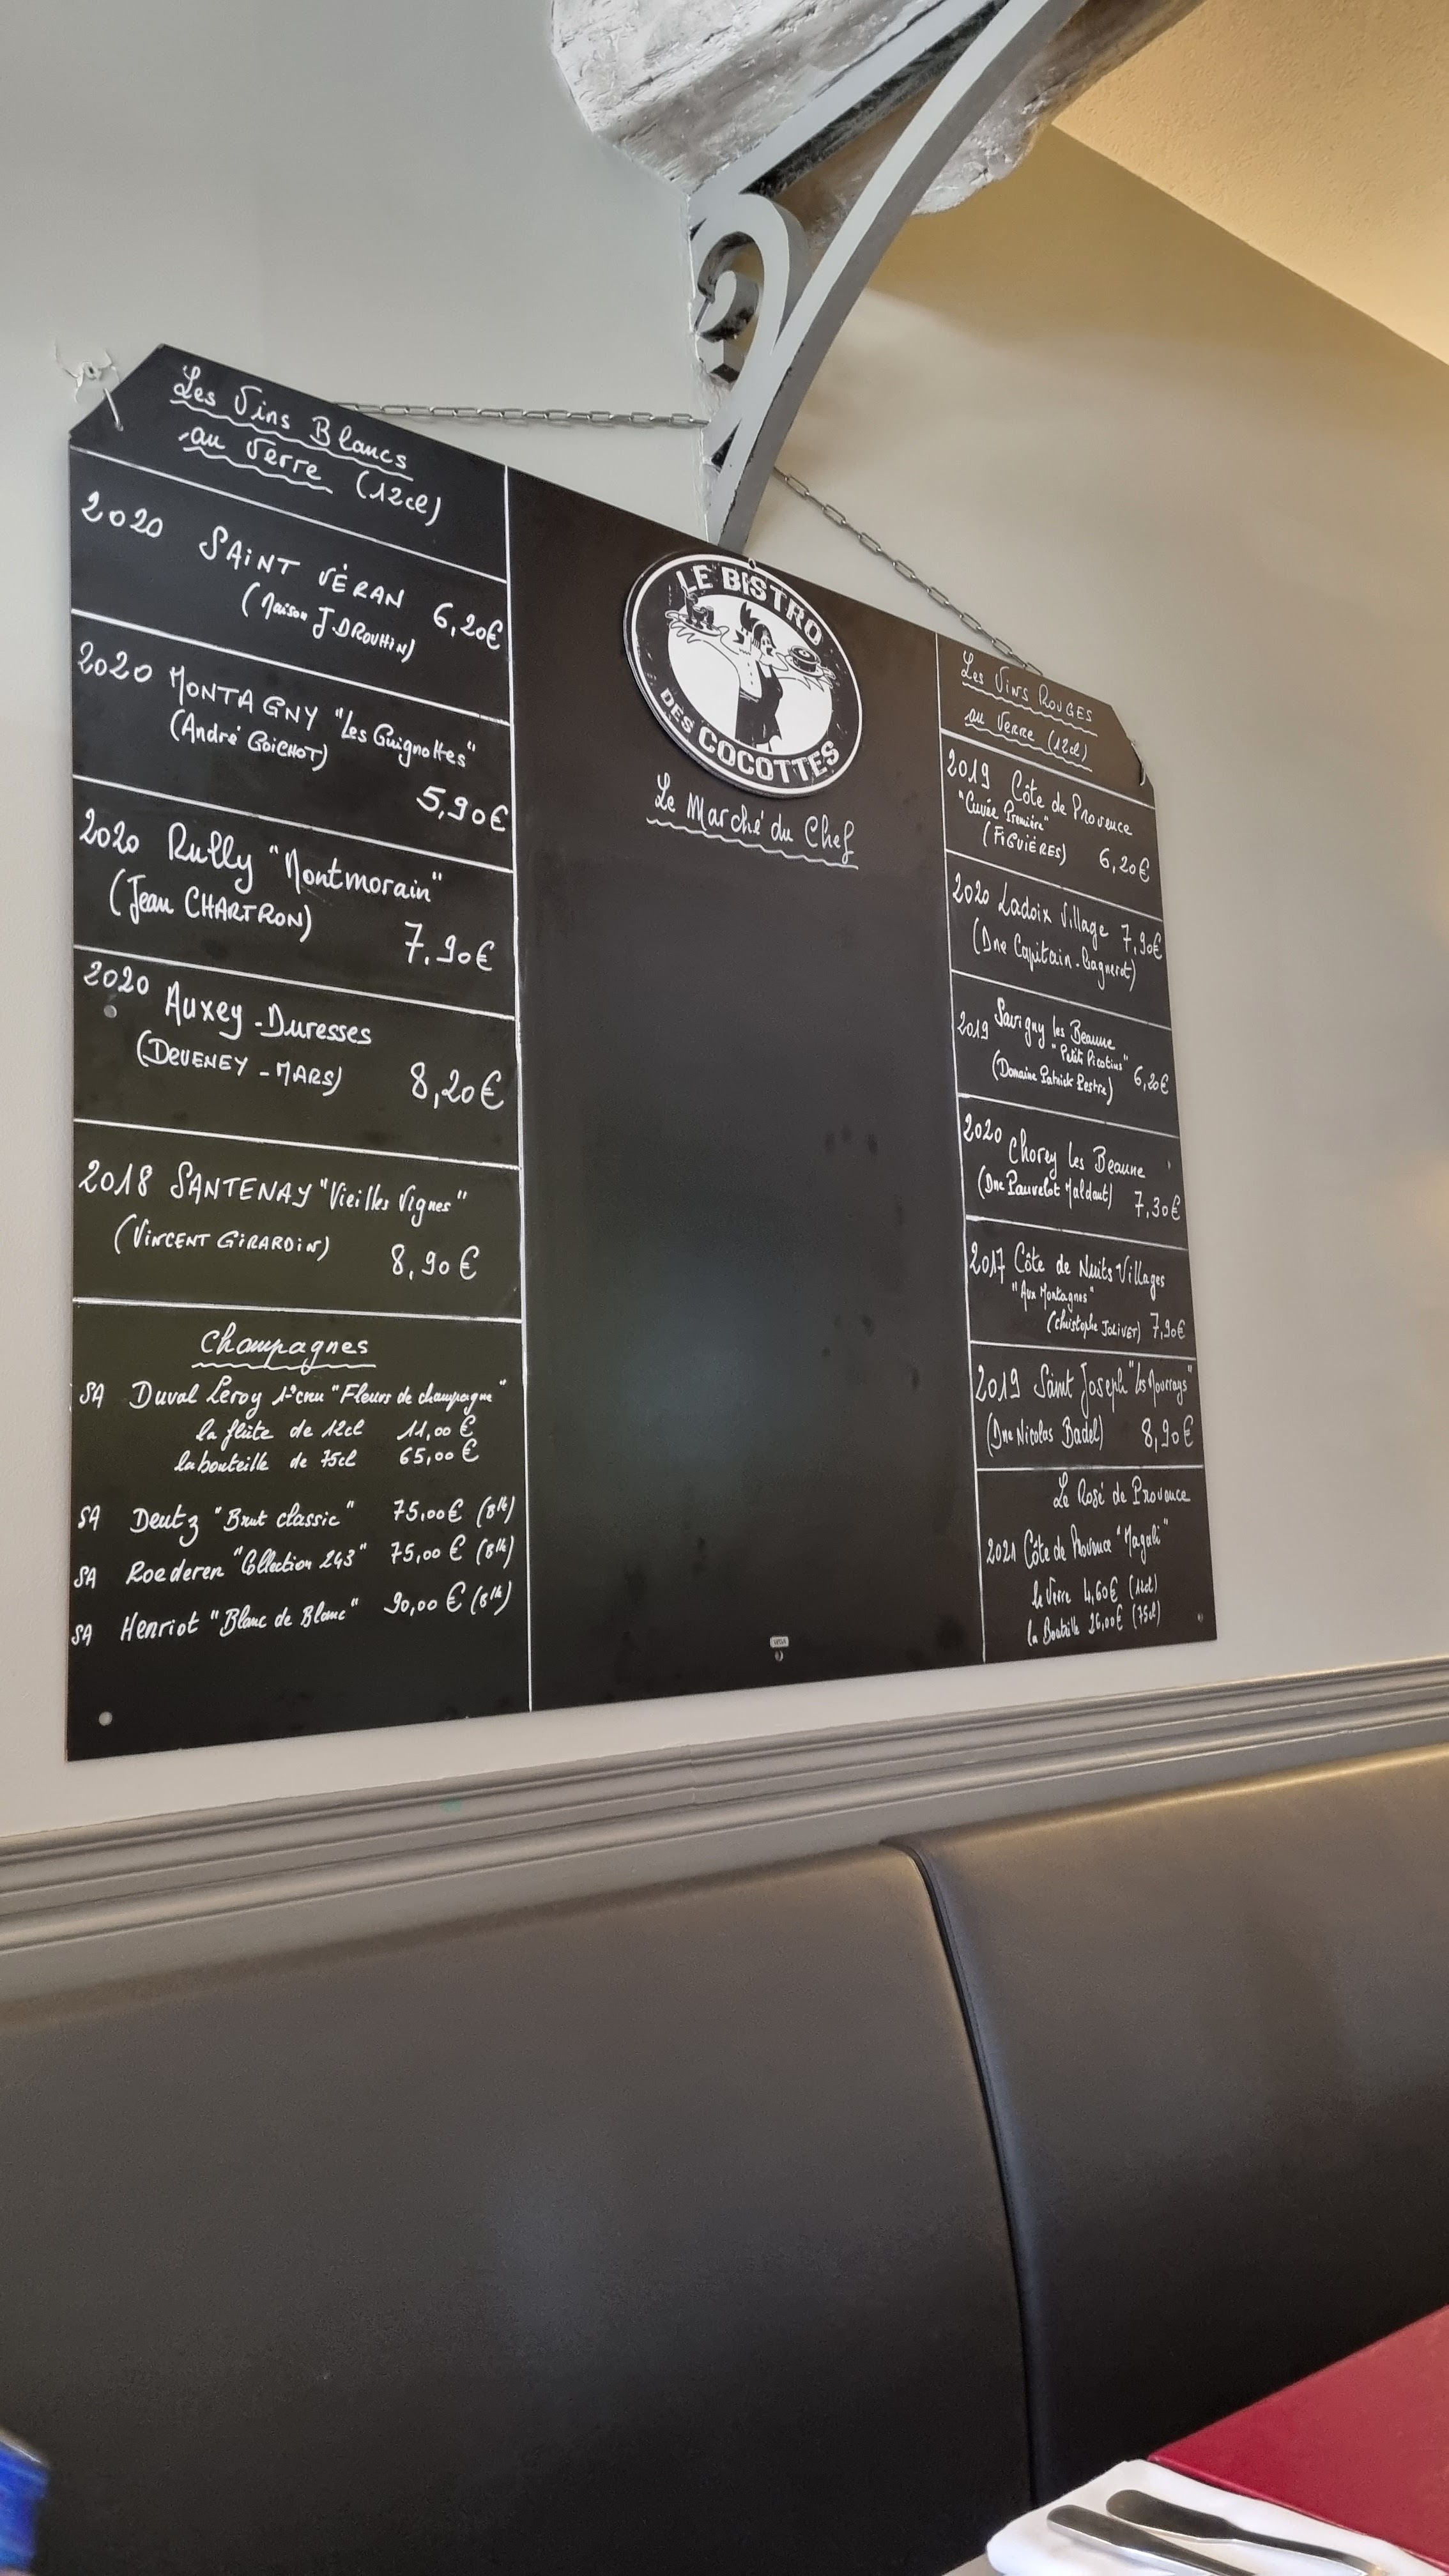 Les Vins Blancs
au Verre (12cl)
2020 SAINT VÉRAN 6,20€
(Maison J DROUHIN)
2020 MONTAGNY "Les Guignottes"
(André GOICHOT)
5,90€
2020 Rully "Montmorain"
(Jean CHARTRON) 7,90€
2020 Auxey-Duresses
(DEVENEY-MARS) 8,20€
2018 SANTENAY "Vieilles Vignes"
(VINCENT GIRARDIN) 8,90€
Champagnes
SA Duval Leroy 1er cru "Fleurs de champagne"
la flûte de 12cl 11,00€
la bouteille de 75cl 65,00€
SA Deutz "Brut classic" 75,00€
SA Roederer "Collection 243" 75,00€
SA Henriot "Blanc de Blanc" 90,00€
LE BISTRO
DES COCOTTES
Le Marché du Chef
Les Vins ROUGES
au Verre (12cl)
2019 Côte de Provence
"Cuvée Première"
(FIGUIÈRES) 6,20€
2020 Ladoix Village 7,90€
(Dne Capitain-Gagnerot)
2019 Savigny les Beaune
"Petits Picotins" 6,20€
(Domaine Patrick Pestre)
2020 Chorey Les Beaune
(Dne Pauvelot Maldant) 7,30€
2017 Côte de Nuits Villages
"Aux Montagnes"
(Christophe JOLIVET) 7,90€
2019 Saint Joseph
(Dne Nicolas Badel) 8,90€
Le Rosé de Provence
2021 Côte de Provence "Magali"
le Verre 4,60€ (12cl)
la Bouteille 26,00€ (75cl)